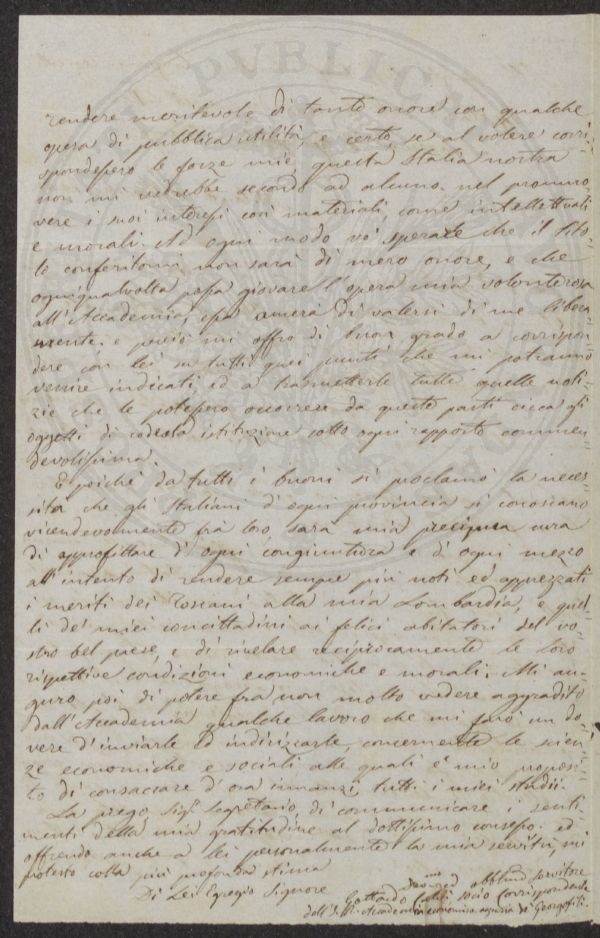 PVBLICAE
rendere meritevole di tanto onore con qualche
opera di pubblica utilità, e certo, se al volere corri-
spondessero le forze mie, questa Italia nostra
non mi vedrebbe secondo ad alcuno nel promuo-
vere i suoi interessi così materiali, come intellettuali
e morali. Ad ogni modo vo' sperare che il tito-
lo conferitomi non sarà di mero onore, e che
ogniqualvolta possa giovare l'opera mia volonterosa
all'Accademia, essa amerà di valersi di me libera-
mente. e perciò mi offro di buon grado a corrispon-
dere con lei su tutti quei punti che mi potranno
venire indicati, ed a trasmetterle tutte quelle noti-
zie che le potessero occorrere da queste parti circa gli
oggetti di codesta istituzione sotto ogni rapporto commen-
devolissima.
E poichè da tutti i buoni si proclamò la neces-
sità che gli Italiani d'ogni provincia si conoscano
vicendevolmente fra loro sarà mia precipua cura
di approfittare d'ogni congiuntura e d'ogni mezzo
all'intento di rendere sempre più noti ed apprezzati
i meriti dei Toscani alla mia Lombardia, e quel-
li de' miei concittadini ai felici abitatori del vo-
stro bel paese, e di rivelare reciprocamente le loro
rispettive condizioni economiche e morali. Mi au-
guro poi di potere fra non molto vedere aggradito
dall'Accademia qualche lavoro che mi farò un do-
vere d'inviarle ed indirizzarle, concernente le scien-
ze economiche e sociali alle quali è mio proposi-
to di consacrare d'ora innanzi tutti i miei studii.
La prego, Sigr. Segretario, di communicare i senti-
menti della mia gratitudine al dottissimo consesso, ed
offrendo anche a lei personalmente la mia servitù, mi
protesto colla più profonda stima
Di Lei Egregio Signore
Devmo ed obblmo servitore
Gottardo socio corrispondente
dell'I. R. Accademia economico agraria de' Georgofili.